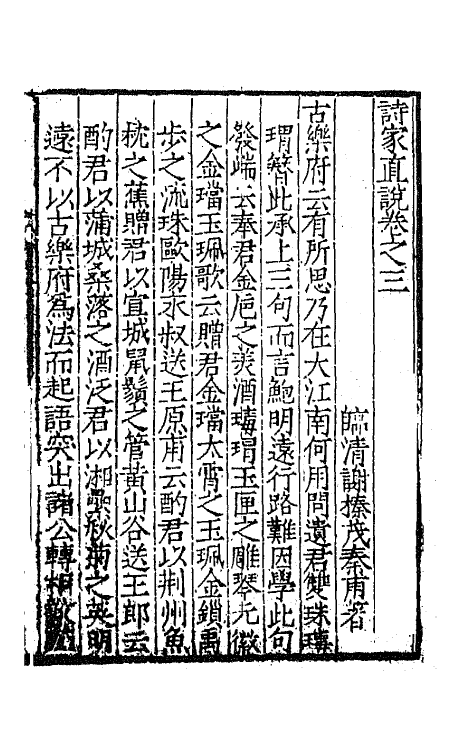 詩家直說卷之三
臨清謝榛茂秦甫著
古樂府云有所思乃在大江南何用問遺君雙珠瑇
瑁簪此承上三句而言鮑明遠行路難因學此句
發端云奉君金巵之羙酒瑇瑁玉匣之雕琴元微
之金璫玉珮歌云贈君金璫太霄之玉珮金鎖禹
步之流珠歐陽永叔送王原甫云酌君以荆州魚
枕之蕉贈君以宣城鼠鬚之管黄山谷送王郎云
酌君以蒲城桑落之酒泛君以湘纍秋菊之英明
遠不以古樂府爲法而起語突出諸公轉相